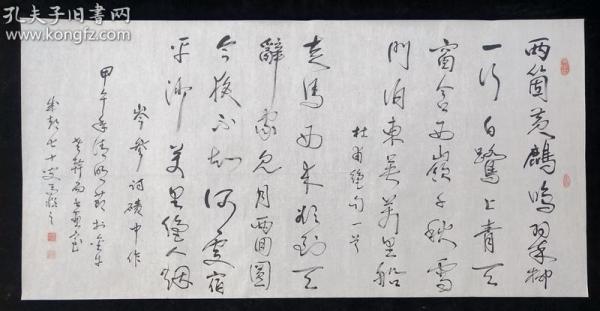 孔夫子旧书网
www.kongfz.com
两箇黄鹂鸣翠柳
一行白鹭上青天
窗含西岭千秋雪
门泊东吴万里船
杜甫绝句一首
走马西来欲到天
辞家见月两回圆
今夜不知何处宿
平沙万里绝人烟
岑参诗碛中作
甲午年清明
七十